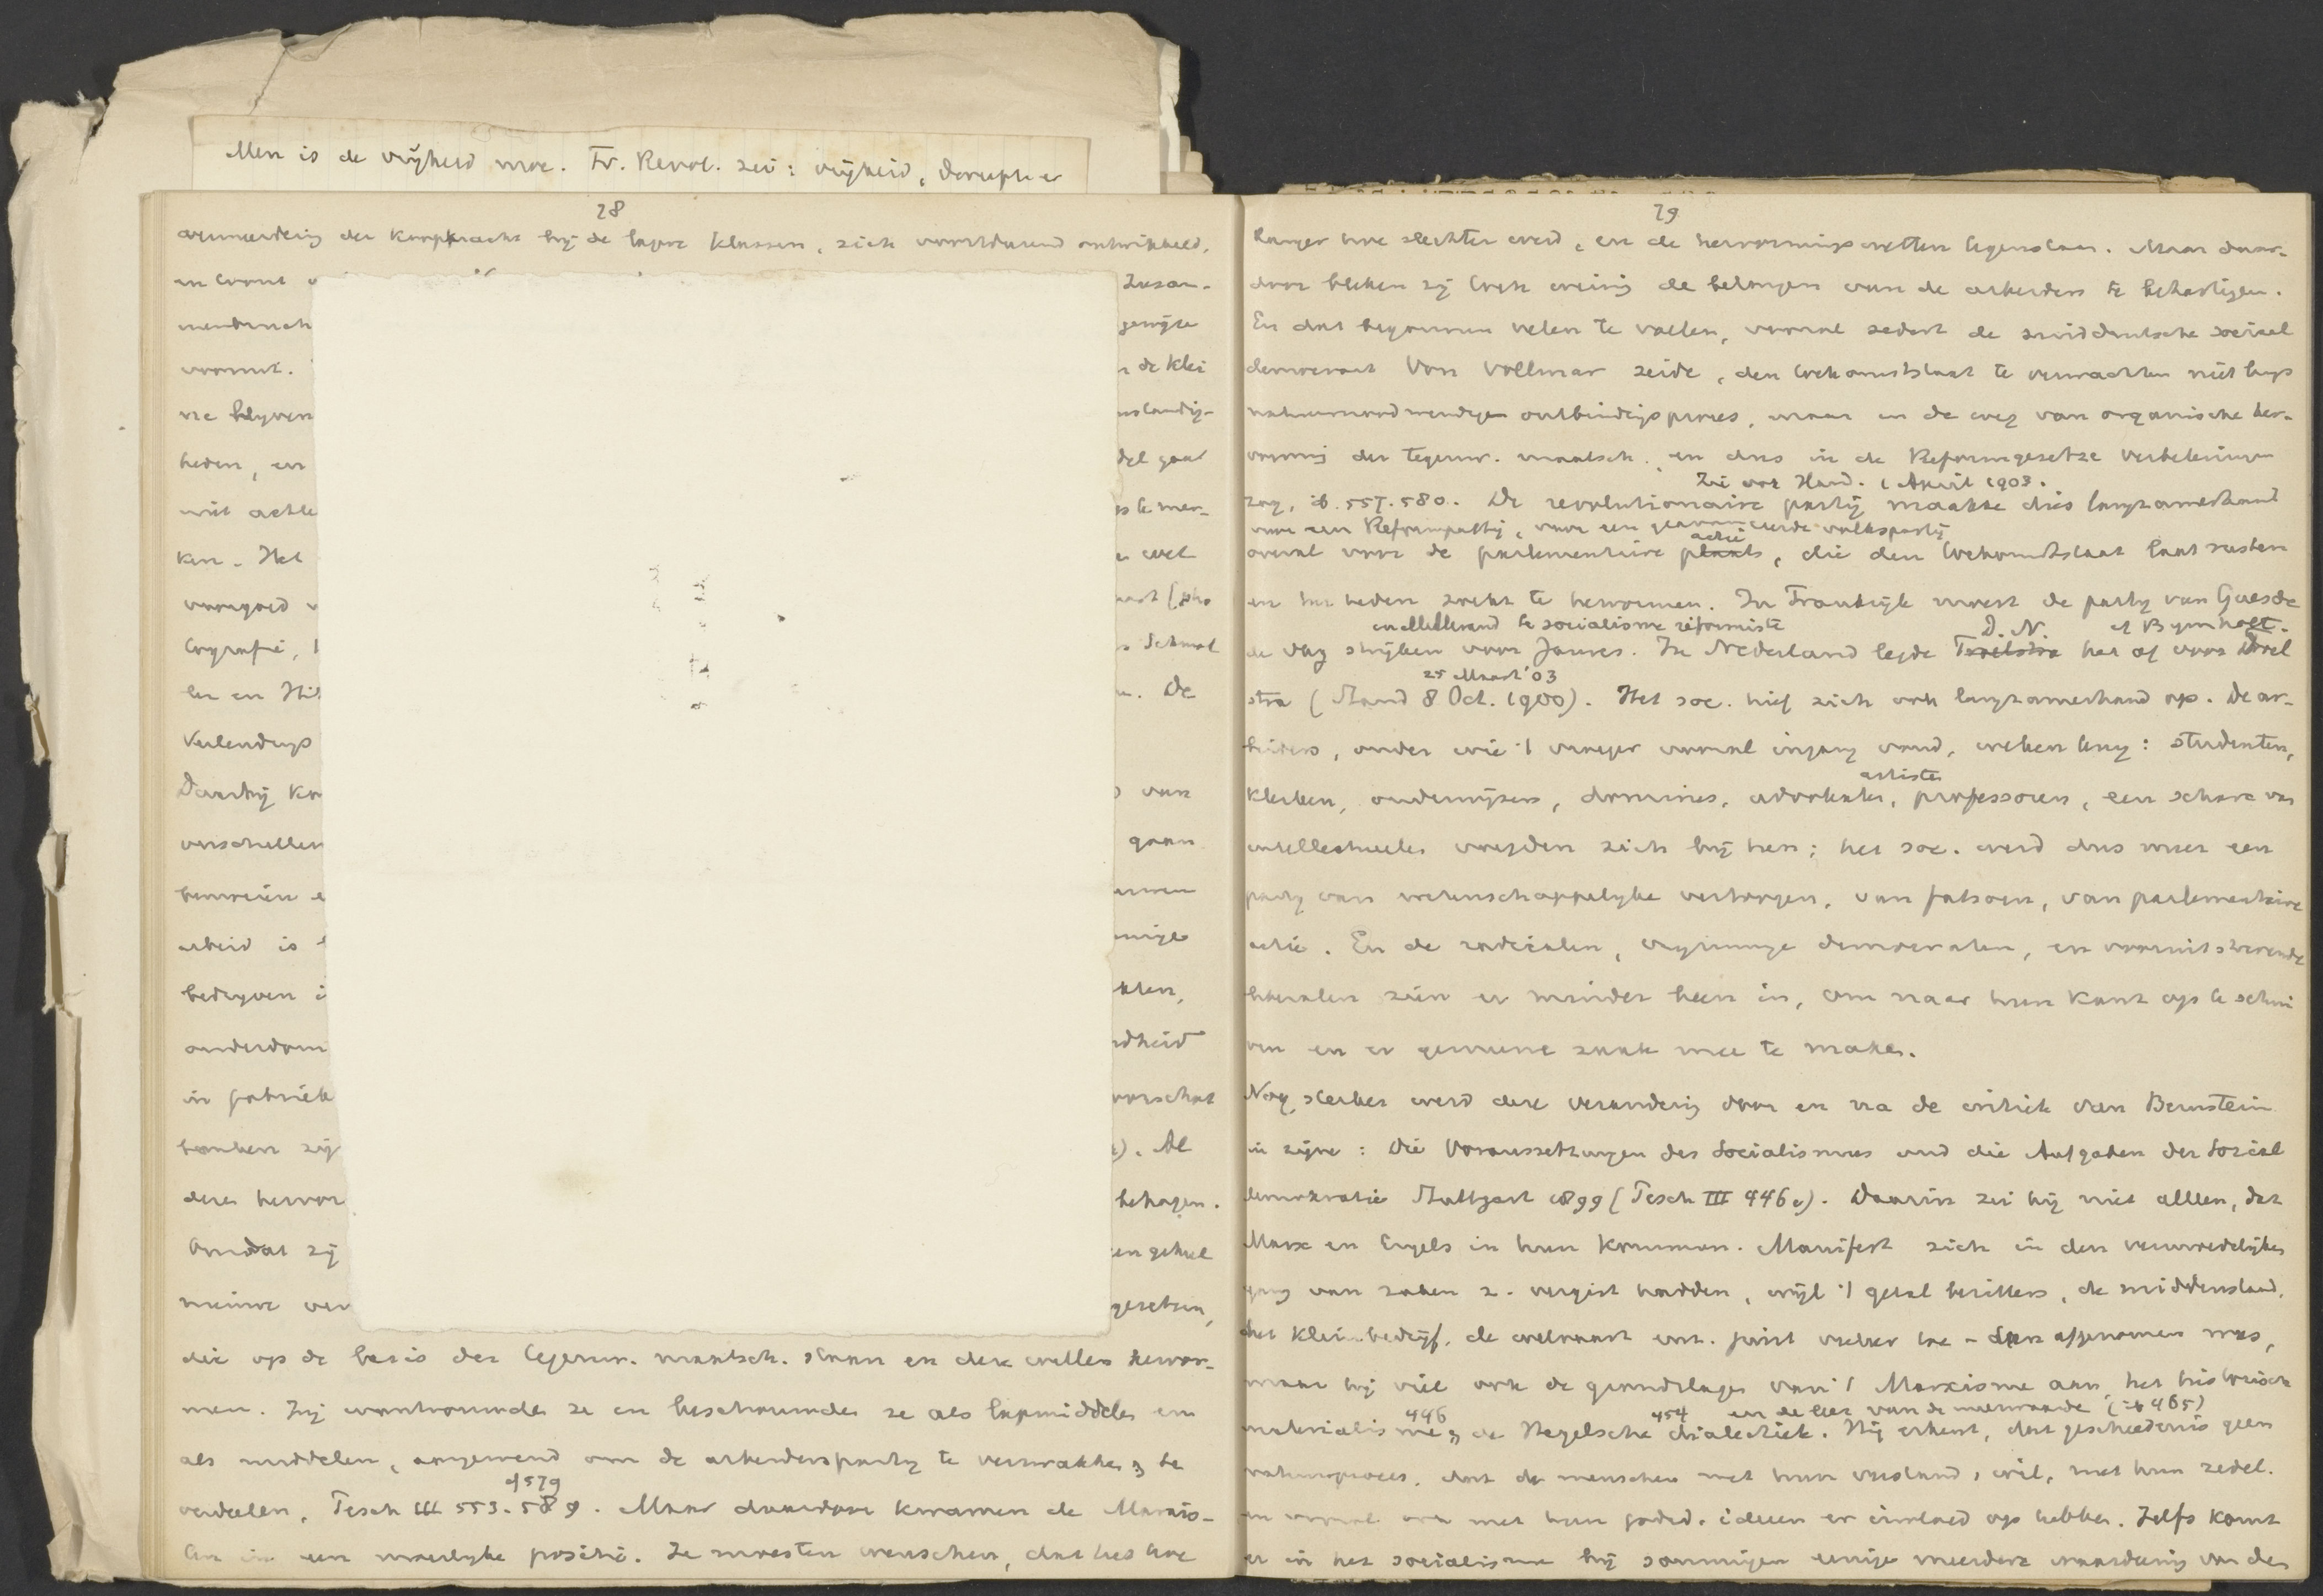 Men is de vrijheid moe. Fr. Revol. zei: vrijheid,
28
vermeerdering der koopkracht bij de lagere klassen, zich voortdurend ontwikkeld,
en Zusam-
menbruch
vormt. de klei
ne blijven
heden, en
niet achte te mer-
ken. Het wel
Schmol
ler en De
Verlendungs
Daarbij van
verschillen gaan
arbeid is
bedrijven
anderdom dheid
in fabriek
banken zijn Al
deze hervor behagen.
Omdat zij
nieuwe
die op de basis der tegenw. maatsch. staan en deze willen hervor-
men. Zij wantrouwden ze en beschouwden ze als lapmiddelen en
als middelen, aangewend om de arbeiderspartij te verzwakken, te
of 579
verdeelen, Tesch III 553-589. Maar daardoor kwamen de Marxis-
ten in een moeilijke positie. Ze moesten wenschen, dat het hoe
29
langer hoe slechter werd, en de hervormingswetten tegenstaan. Maar daar-
door bleken zij toch weinig de belangen van de arbeiders te behartigen.
En dat begonnen velen te voelen, vooral sedert de zuidduitsche sociaal
democraat Von Vollmar zeide, den toekomststaat te verwachten niet langs
natuurnoodwendigen ontbindingsproces, maar in de weg van organische her-
vorming der tegenw. maatsch. en dus in de Reformgesetze verbeteringen
Zie ook Hand. 1 April 1903.
zag, ib. 557. 580. De revolutionaire partij maakte dus langzamerhand
voor een Reformpartij, voor een volkspartij
actie
overal voor de parlementaire plaats, die den toekomststaat laat rusten
en het heden zoekt te hervormen. In Frankrijk moest de partij van Guesde
en Millerand le socialisme réformiste D. N. of Bymholt.
de vlag strijken voor Jaures. In Nederland legde Troelstra het af voor Troel
25 Maart '03
stra (Stand 8 Oct. 1900). Het soc. hief zich ook langzamerhand op. De ar-
beiders, onder wie 't vroeger vooral ingang vond, weken terug: studenten,
artisten
klerken, onderwijzers, dominés, advokaten, professoren, een schare van
intellectueelen voegden zich bij hen; het soc. werd dus meer een
partij van wetenschappelijke vertoogen, van fatsoen, van parlementaire
actie. En de radicalen, vrijzinnige democraten, en vooruitstrevende
liberalen zien er minder been in, om naar hun kant op te schui
ven en er gemeene zaak mee te maken.
Nog sterker werd deze verandering door en na de critiek van Bernstein
in zijne: Die Voraussetzungen des Socialismus und die Aufgaben der Social
demokratie Stuttgart 1899 (Tesch III 446 v). Daarin zei hij niet alleen, dat
Marx en Engels in hun Kommun. Manifest zich in den vermoedelijken
gang van zaken z. vergist hadden, wijl 't getal bezitters, de middenstand,
het kleinbedrijf, de welvaart enz. juist veeleer toe- dan afgenomen was,
maar hij viel ook de grondslagen van 't Marxisme aan, het historisch
446 454 en de leer van de meerwaarde (ib 465)
materialisme, de Hegelsche dialectiek. Hij erkent, dat geschiedenis geen
natuurproces, dat de menschen met hun verstand, wil, met hun zedel.
en vooral ook met hun godsd. ideeen er invloed op hebben. Zelfs komt
er in het socialisme bij sommigen eenige meerdere waardeering van den